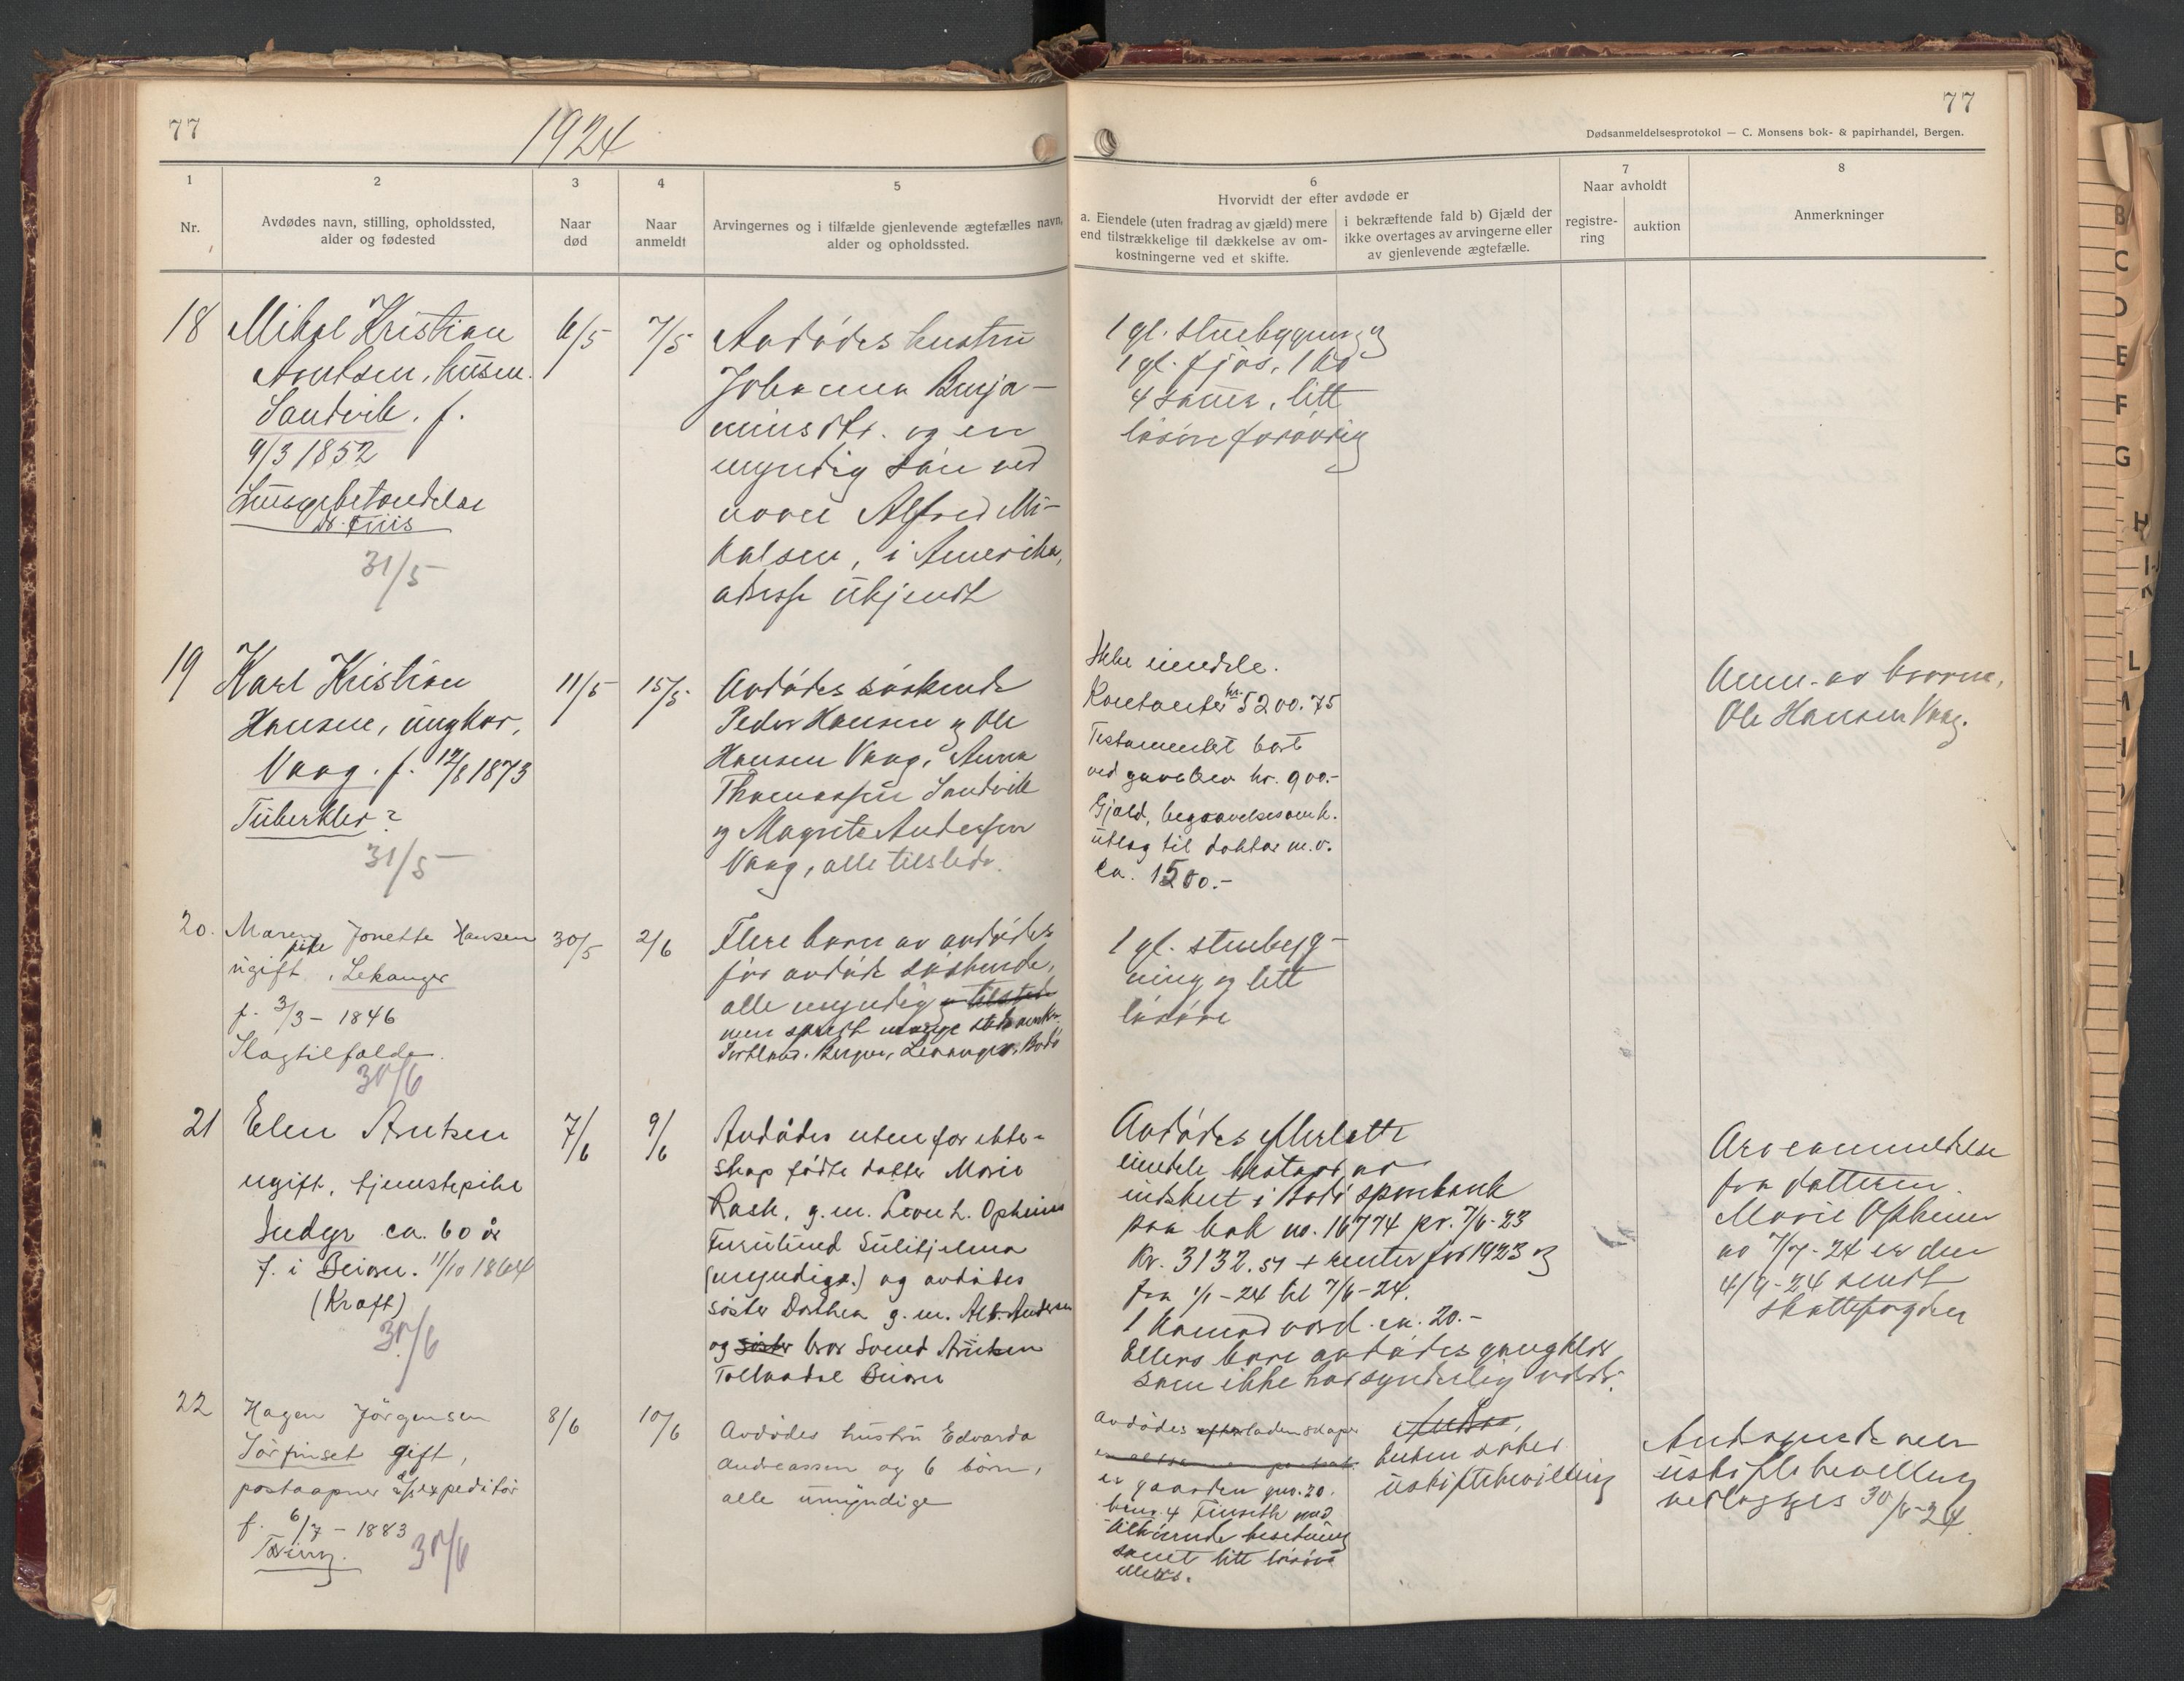 77
1924
77
Dødsanmeldelsesprotokol — C. Monsens bok- & papirhandel, Bergen.
1
Nr.
2
Avdødes navn, stilling, opholdssted,
alder og fødested
3
Naar
død
4
Naar
anmeldt
5
Arvingernes og i tilfælde gjenlevende ægtefælles navn,
alder og opholdssted.
6
Hvorvidt der efter avdøde er
a. Eiendele (uten fradrag av gjæld) mere
end tilstrækkelige til dækkelse av om-
kostningerne ved et skifte.
i bekræftende fald b) Gjæld der
ikke overtages av arvingerne eller
av gjenlevende ægtefælle.
7
Naar avholdt
registre-
ring
auktion
8
Anmerkninger
18
Mikal Kristian
Arntsen, husm.
Sandvik. f.
9/3 1852
Lungebetændelse
dr. Friis
31/5
6/5
7/5
Avdødes hustru
Johanna Benja-
minsdtr. og en
myndig søn ved
navn Alfred Mi-
kalsen, i Amerika,
adresse ukjendt
1 gl. stuebygning og
1 gl. fjøs, 1 ko
4 sauer, litt
løsøre forøvrig
19
Karl Kristian
Hansen, ungkar,
Vaag. f. 12/8 1873
Tuberkler?
31/5
11/5
15/5
Avdødes søskende
Peder Hansen og Ole
Hansen Vaag, Anna
Thomassen Sandvik
og Magrete Anderssen
Vaag, alle tilstede.
Ikke eiendele.
Kontanter kr. 5200.75
Testamentet bort
ved gavebrev kr. 900.-
Gjæld, begravelsesomk.
utlæg til doktor m.v.
ca. 1500.-
Anm. av broren,
Ole Hansen Vaag.
20.
Maren Jonette Hansen
pike
ugift, Lekanger
f. 3/3 - 1846
Slagtilfælde.
30/6
30/5
2/6
Flere barn av avdødes
før avdøde søskende,
alle myndig og tilstede
men spredt mange steder
Bergen, Lekanger, Bodø
1 gl. stuebyg-
ning og litt
løsøre
21
Elen Arntsen
ugift, tjenestepike
Indyr ca. 60 år
f. i Beiarn. 11/10 1864
(Kræft)
30/6
7/6
9/6
Avdødes utenfor ekte-
skap fødte datter Marie
Rask, g.m. L. Opheim
Furulund Sulitjelma
(myndige.) og avdødes
søster Dorthea g.m. Alb. Andersen
og søster bror Svend Arntsen
Tollaadal Beiarn
Avdødes efterlatte
eiendele bestaar av
indskut i Bodø sparebank
paa bok no. 16774 pr. 7/6-23
kr. 3132.51 + renter for 1923 og
fra 1/1-24 til 7/6-24.
1 komod værd ca. 20.-
Ellers bare avdødes gangklær
som ikke har synderlig værdi.
Arveanmeldelse
fra datteren
Marie Opheim
av 7/7-24 er den
4/9-24 sendt
skattefogden
22
Hagen Jørgensen
Sørfinset gift,
postaapner & expeditør
f. 6/7 - 1883
Tæring.
30/6
8/6
10/6
Avdødes hustru Edvarda
Andreassen og 6 børn,
alle umyndige
Avdødes efterladenskaper
er gaarden gno. 20.
bno. 4 Finseth med
tilhørende besetning
samt litt løsøre
ellers.
Enken søker
uskiftebevilling
Andragende om
uskiftebevilling
vedlægges 30/6-24.
B
C
D
E
F
G
H
L